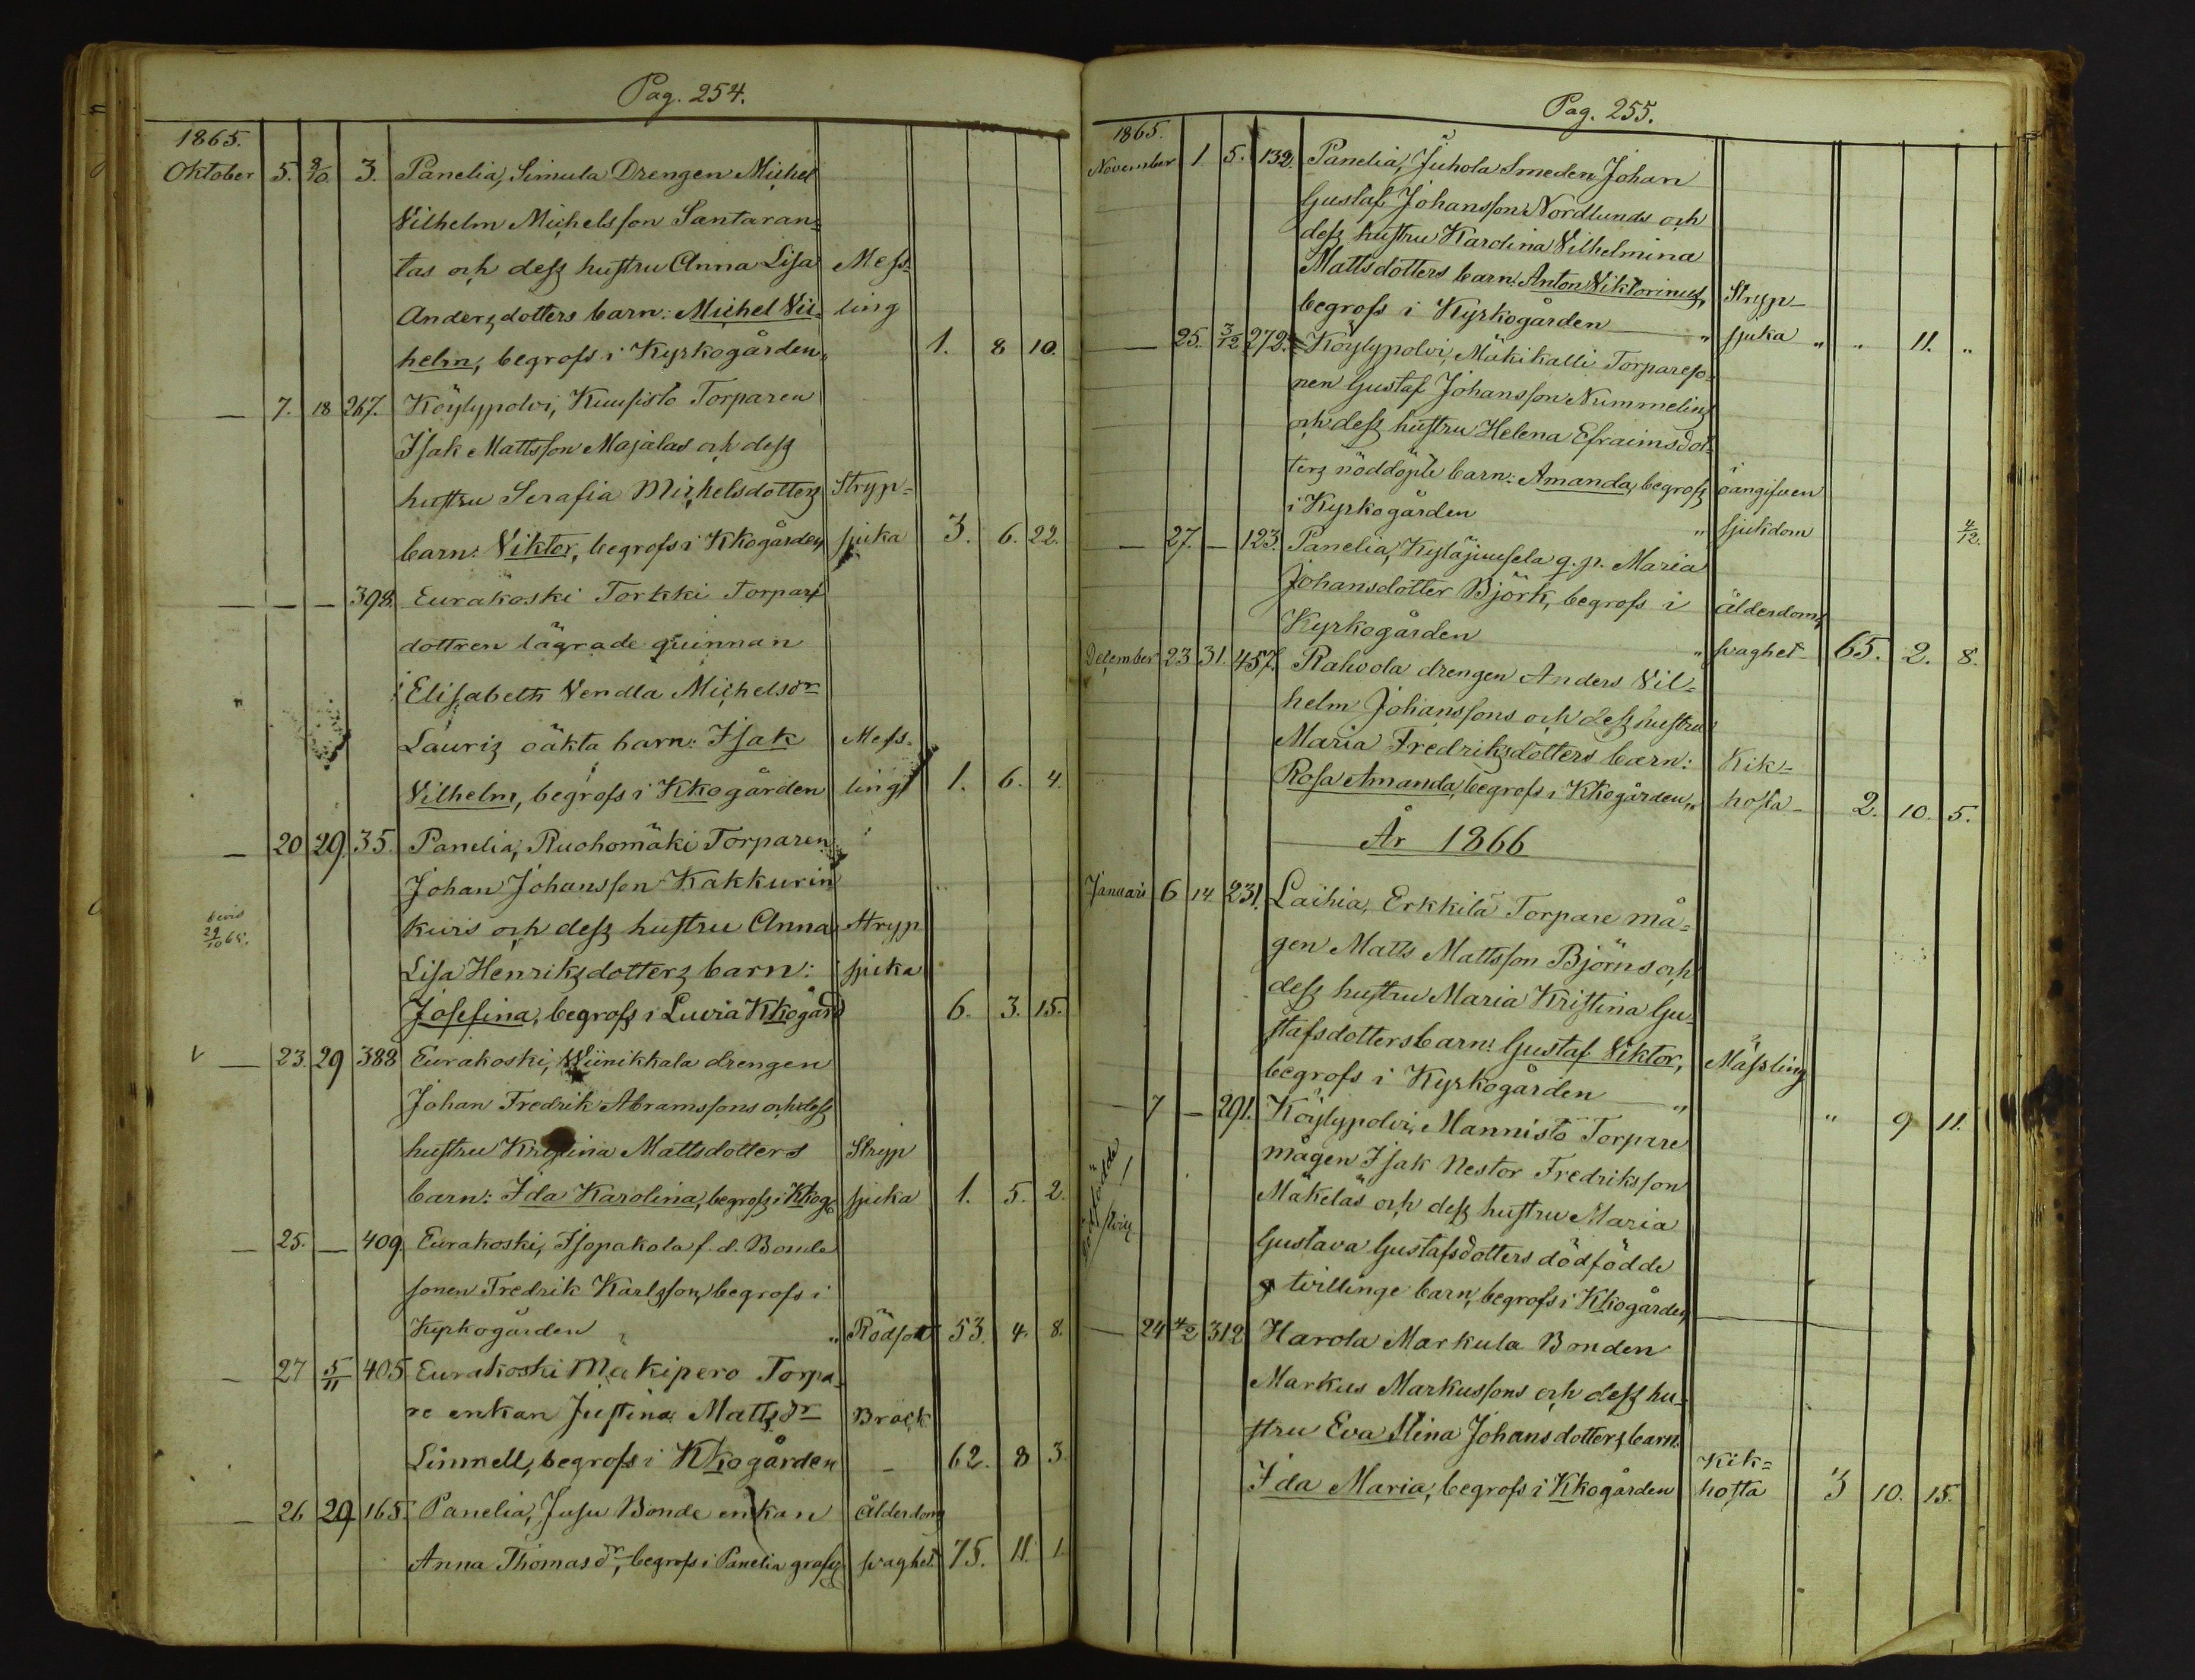 Pag. 254.
1865.
Oktober 5. 8/10. 3. Panelia, Simula Drengen Michel
Vilhelm Michelsson Santaran=
tas och dess hustru Anna Lisa Mess=
Andersdotters barn: Michel Vil= ling
helm, begrofs i Kyrkogården 1. 8 10.
— 7. 18 267. Köylypolvi, Kuusisto Torparen
Isak Mattsson Majalas och dess
hustru Serafia Michelsdotters Stryp=
barn: Viktor, begrofs i Kkogården sjuka 3. 6. 22.
— — — 398. Eurakoski Torkki Torpars
dottren lägrade quinnan
Elisabeth Vendla Michelsdr
Lauris oäkta barn: Isak Mess=
Vilhelm, begrofs i Kkogården ling 1. 6. 4.
— 20 29. 35. Panelia, Ruohomäki Torparen
Johan Johansson Kakkurin
bevis 29/10 65. kuris och dess hustru Anna Stryp
Lisa Henriksdotters barn: sjuka
Josefina, begrofs i Luvia Kkogård 6. 3. 15.
v — 23. 29 388 Eurakoski, Wiinikkala drengen
Johan Fredrik Abramssons och dess
hustru Kristina Mattsdotters Stryp
barn: Ida Karolina, begrofs i Kkog sjuka 1. 5. 2.
— 25. — 409. Eurakoski, Isopakola f. d. Bonde
sonen Fredrik Karlsson, begrofs i
Kyrkogården " Rödsot 53. 4. 8.
— 27 5/11 405 Eurakoski Mäkipero Torpa=
re enkan Justina Mattsdr Bråck
Linnell, begrofs i Kkogården — 62. 8 3.
— 26 29 165. Panelia, Jusu Bonde enkan Ålderdoms
Anna Thomasdr, begrofs i Panelia svaghet. 75. 11. 1
Pag. 255.
1865.
November 1. 5. 132. Panelia, Juhola Smeden Johan
Gustaf Johansson Nordlunds och
dess hustru Karolina Vilhelmina
Mattsdotters barn: Anton Viktorinus, Stryp=
begrofs i Kyrkogården — " sjuka " " 11. "
— 25. 3/12 272. Köylypolvi, Mäkikalli Torpareso=
nen Gustaf Johansson Nummelins
och dess hustru Helena Efraimsdot=
ters nöddöpte barn: Amanda, begrofs oangifven
i Kyrkogården " sjukdom 4/12.
— 27. — 123. Panelia, Kyläjuusela q. p. Maria
Johansdotter Björk, begrofs i ålderdoms
Kyrkogården " svaghet — 65. 2. 8.
December 23 31. 457. Rahvola drengen Anders Vil=
helm Johanssons och dess hustru
Maria Fredriksdotters barn: Kik=
Rosa Amanda, begrofs i Kkogården, " hosta — 2. 10. 5.
År 1866
Januari 6 14 231. Laihia, Erkkilä Torpare må=
gen Matts Mattsson Björns och
dess hustru Maria Kristina Gu=
stafsdotters barn: Gustaf Viktor, Mässling
begrofs i Kyrkogården — " " 9 11.
— 7 — 291. Köylypolvi, Mannisto Torpare
mågen Isak Nestor Fredriksson
Mäkeläs och dess hustru Maria
Gustava Gustafsdotters dödfödde
tvillinge barn, begrofs i Kkogården
dödfödde
— 24 4/2 312 Harola Markula Bonden
Markus Markussons och dess hu=
stru Eva Stina Johansdotters barn: Kik=
Ida Maria, begrofs i Kkogården hosta 3 10. 15.